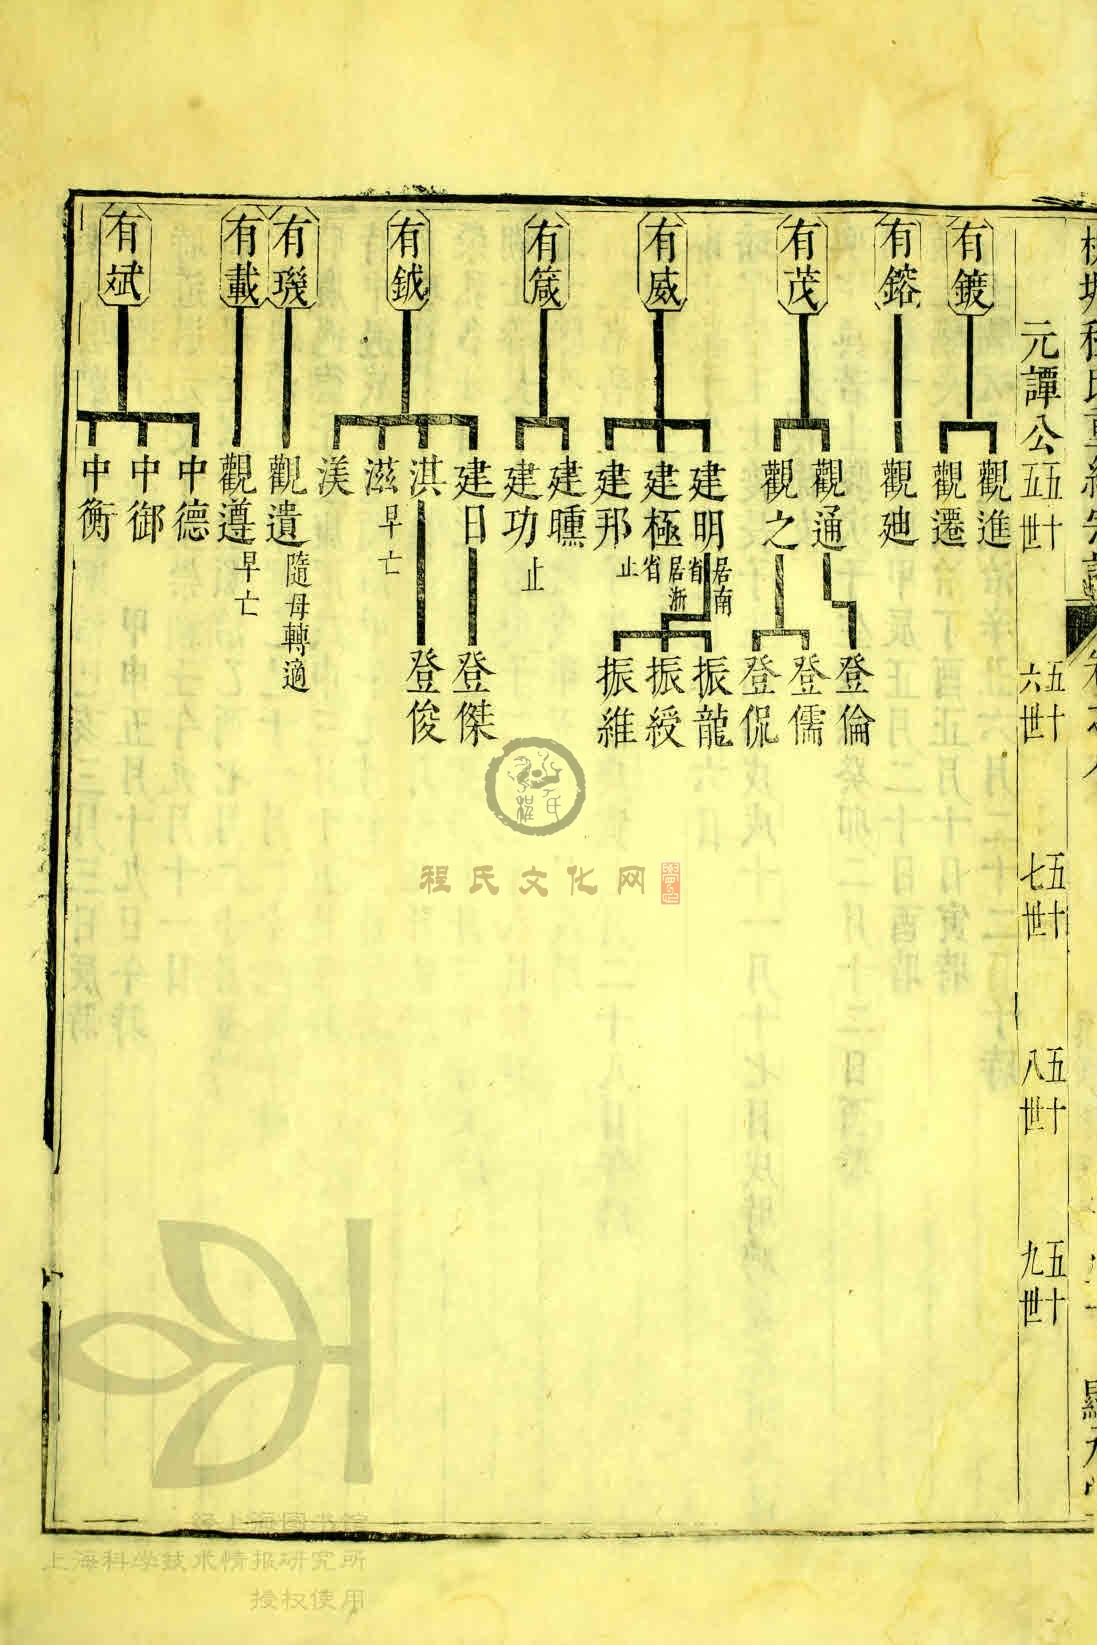 元譚公
五十五世
五十六世
五十七世
五十八世
五十九世
有鍍
觀進
觀遷
有鎔
觀廸
有茂
觀通
登倫
觀之
登儒
登侃
有威
建明 居南省
振龍
振綬
振維
建極 居浙省
建邦 止
有箴
建勳
建功 止
有鉞
建日
登傑
淇
登俊
滋 早亡
渼
有璣
觀遺 隨母轉適
有載
觀遵 早亡
有斌
中德
中御
中衡
程氏文化网
上海科学技术情报研究所
授权使用